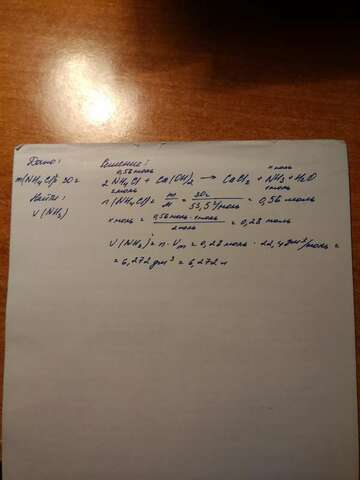 Дано:
Решение:
m(NH4Cl)=30г
0,56 моль
x моль
2NH4Cl + Ca(OH)2 → CaCl2 + NH3 + H2O
2моль
1моль
Найти:
V(NH3)
n(NH4Cl)= m/M = 30г/53,5г/моль = 0,56 моль
x моль = 0,56моль·1моль/2моль = 0,28 моль
V(NH3)= n·Vm = 0,28моль · 22,4дм³/моль =
= 6,272 дм³ = 6,272 л